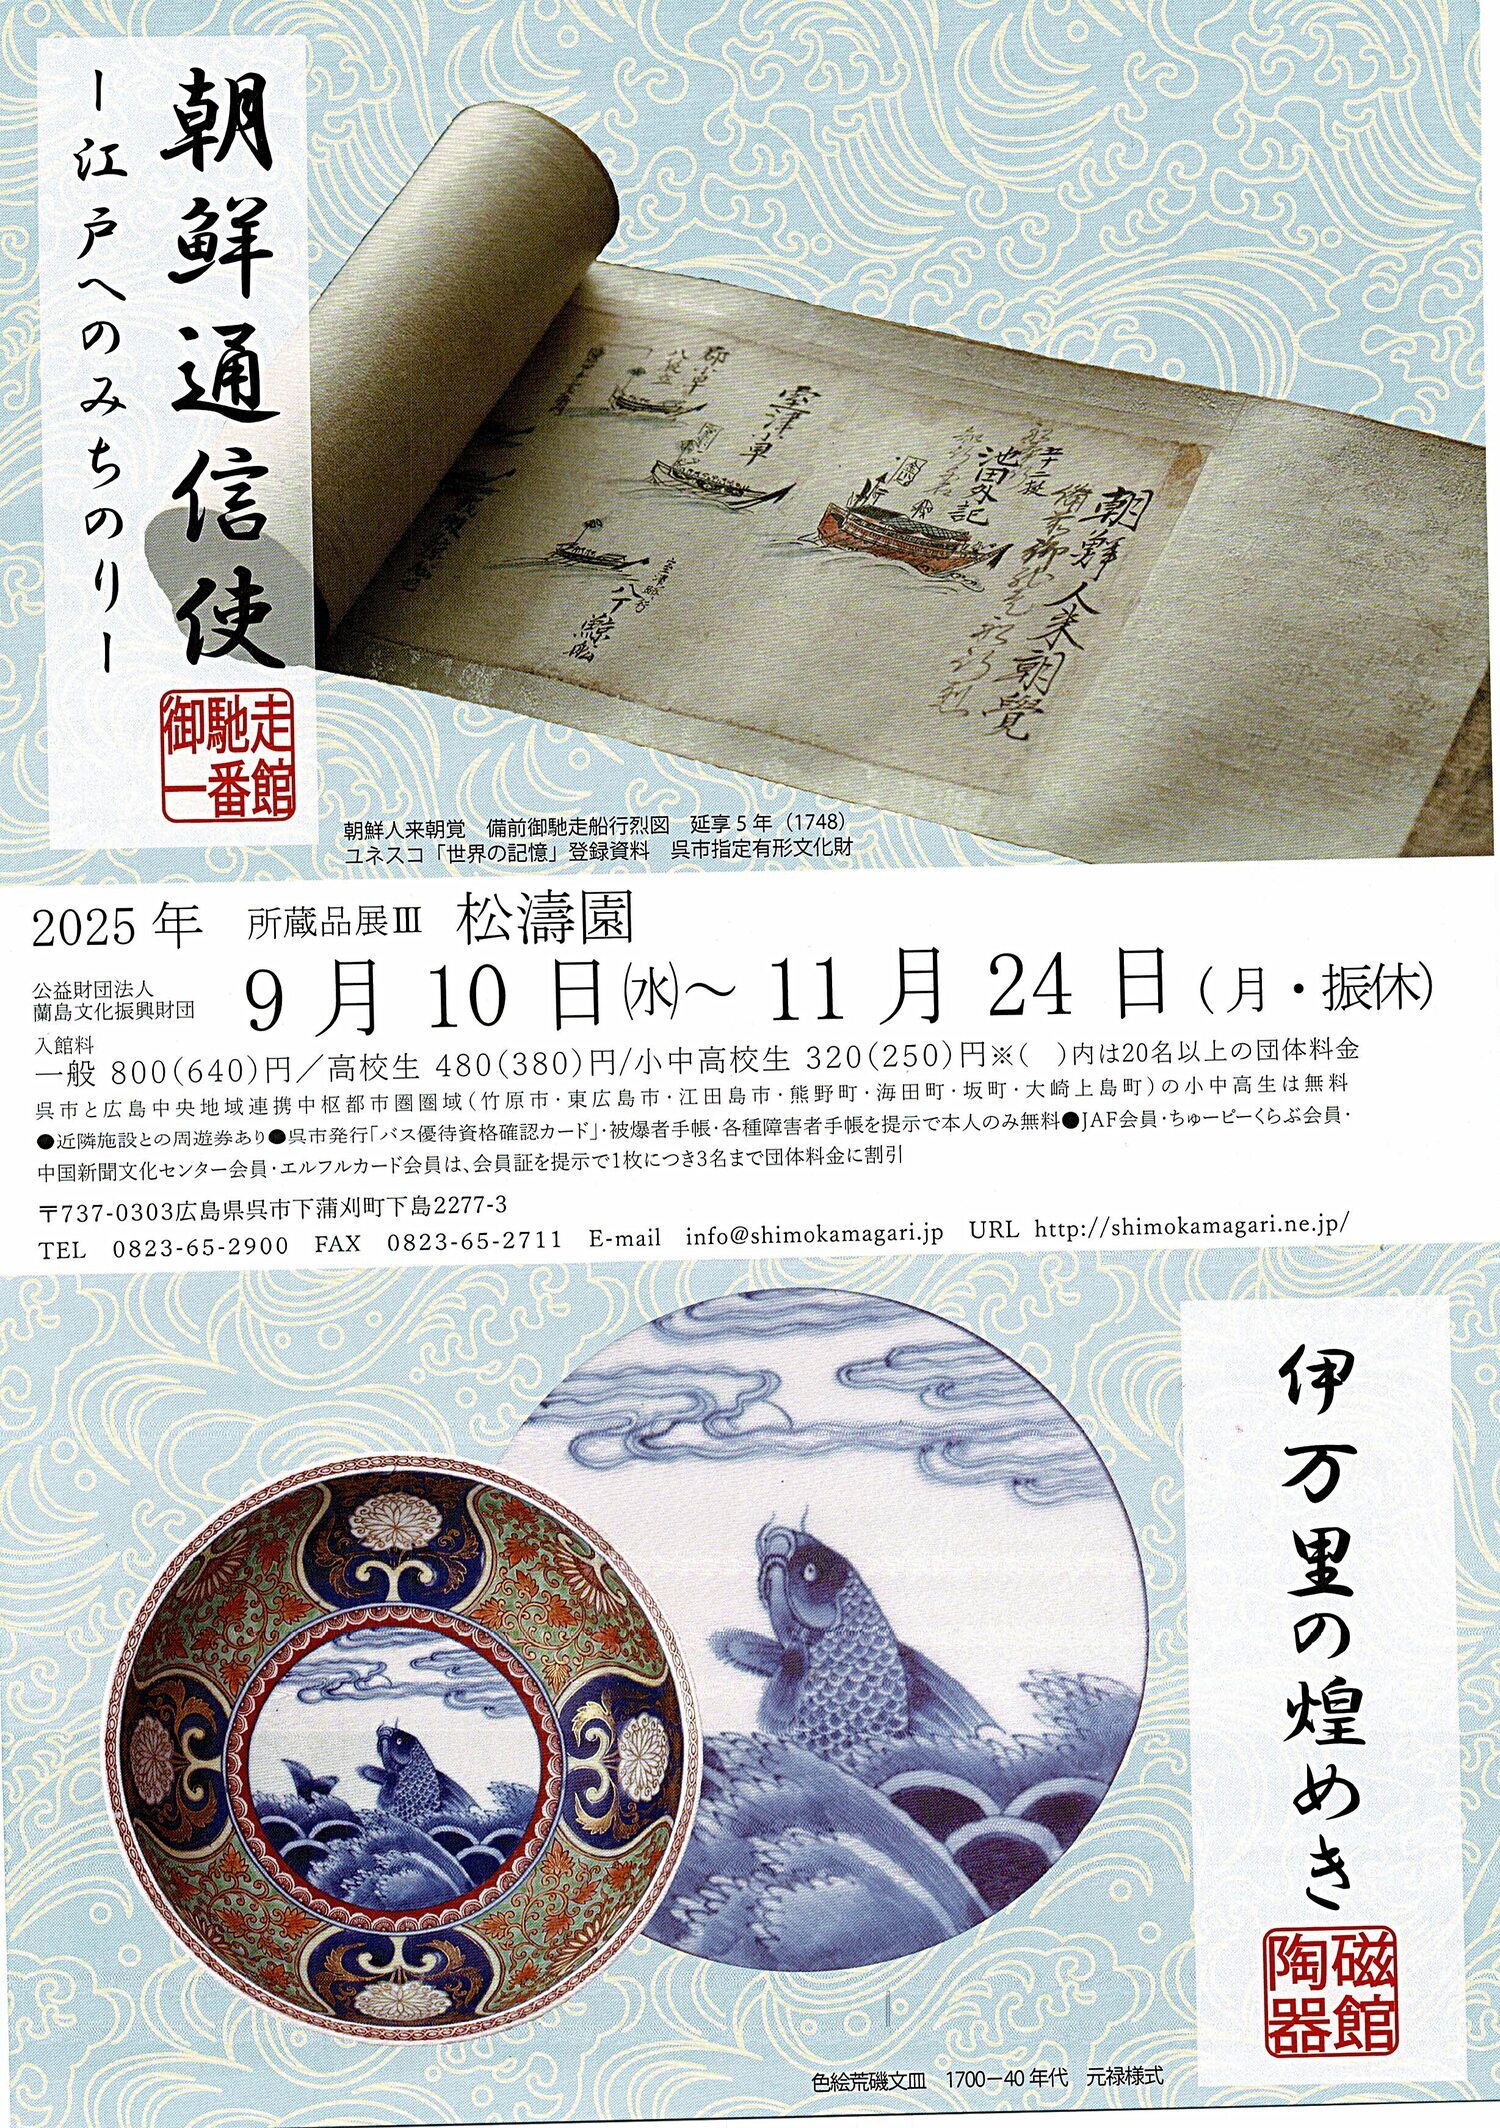 朝鮮通信使
ー江戸へのみちのりー
御馳走
一番館
朝鮮人来朝覺
備前御馳走船行烈
五十二挺
池田外記
室津口
八丁
鯨舩
朝鮮人来朝覚　備前御馳走船行烈図　延享5年（1748）
ユネスコ「世界の記憶」登録資料　呉市指定有形文化財
2025年　所蔵品展Ⅲ　松濤園
公益財団法人
蘭島文化振興財団
9月10日㈬～11月24日（月・振休）
入館料
一般 800(640)円／高校生 480(380)円/小中高校生 320(250)円※(　)内は20名以上の団体料金
呉市と広島中央地域連携中枢都市圏圏域(竹原市・東広島市・江田島市・熊野町・海田町・坂町・大崎上島町)の小中高生は無料
●近隣施設との周遊券あり●呉市発行「バス優待資格確認カード」・被爆者手帳・各種障害者手帳を提示で本人のみ無料●JAF会員・ちゅーピーくらぶ会員・
中国新聞文化センター会員・エルフルカード会員は、会員証を提示で1枚につき3名まで団体料金に割引
〒737-0303広島県呉市下蒲刈町下島2277-3
TEL　0823-65-2900　FAX　0823-65-2711　E-mail　info@shimokamagari.jp　URL　http://shimokamagari.ne.jp/
伊万里の煌めき
陶磁
器館
色絵荒磯文皿　1700－40年代　元禄様式